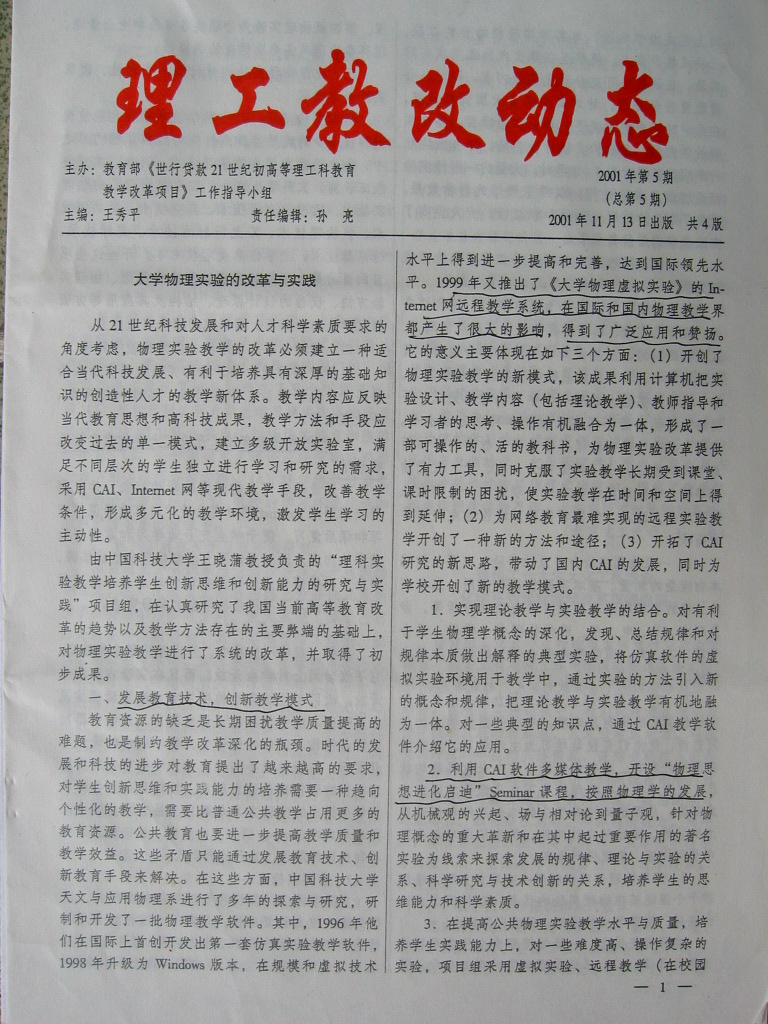 理工教改动态
主办：教育部《世行贷款21世纪初高等理工科教育
教学改革项目》工作指导小组
主编：王秀平 责任编辑：孙 亮
2001年第5期
（总第5期）
2001年11月13日出版 共4版
大学物理实验的改革与实践
从21世纪科技发展和对人才科学素质要求的
角度考虑，物理实验教学的改革必须建立一种适
合当代科技发展、有利于培养具有深厚的基础知
识的创造性人才的教学新体系。教学内容应反映
当代教育思想和高科技成果，教学方法和手段应
改变过去的单一模式，建立多级开放实验室，满
足不同层次的学生独立进行学习和研究的需求，
采用CAI、Internet网等现代教学手段，改善教学
条件，形成多元化的教学环境，激发学生学习的
主动性。
由中国科技大学王晓蒲教授负责的“理科实
验教学培养学生创新思维和创新能力的研究与实
践”项目组，在认真研究了我国当前高等教育改
革的趋势以及教学方法存在的主要弊端的基础上，
对物理实验教学进行了系统的改革，并取得了初
步成果。
一、发展教育技术，创新教学模式
教育资源的缺乏是长期困扰教学质量提高的
难题，也是制约教学改革深化的瓶颈。时代的发
展和科技的进步对教育提出了越来越高的要求，
对学生创新思维和实践能力的培养需要一种趋向
个性化的教学，需要比普通公共教学占用更多的
教育资源。公共教育也要进一步提高教学质量和
教学效益。这些矛盾只能通过发展教育技术、创
新教育手段来解决。在这些方面，中国科技大学
天文与应用物理系进行了多年的探索与研究，研
制和开发了一批物理教学软件。其中，1996年他
们在国际上首创开发出第一套仿真实验教学软件，
1998年升级为Windows版本，在规模和虚拟技术
水平上得到进一步提高和完善，达到国际领先水
平。1999年又推出了《大学物理虚拟实验》的In-
ternet网远程教学系统，在国际和国内物理教学界
都产生了很大的影响，得到了广泛应用和赞扬。
它的意义主要体现在如下三个方面：（1）开创了
物理实验教学的新模式，该成果利用计算机把实
验设计、教学内容（包括理论教学）、教师指导和
学习者的思考、操作有机融合为一体，形成了一
部可操作的、活的教科书，为物理实验改革提供
了有力工具，同时克服了实验教学长期受到课堂、
课时限制的困扰，使实验教学在时间和空间上得
到延伸；（2）为网络教育最难实现的远程实验教
学开创了一种新的方法和途径；（3）开拓了CAI
研究的新思路，带动了国内CAI的发展，同时为
学校开创了新的教学模式。
1．实现理论教学与实验教学的结合。对有利
于学生物理学概念的深化，发现、总结规律和对
规律本质做出解释的典型实验，将仿真软件的虚
拟实验环境用于教学中，通过实验的方法引入新
的概念和规律，把理论教学与实验教学有机地融
为一体。对一些典型的知识点，通过CAI教学软
件介绍它的应用。
2．利用CAI软件多媒体教学，开设“物理思
想进化启迪”Seminar课程，按照物理学的发展，
从机械观的兴起、场与相对论到量子观，针对
物理概念的重大革新和在其中起过重要作用的著名
实验为线索来探索发展的规律、理论与实验的关
系、科学研究与技术创新的关系，培养学生的思
维能力和科学素质。
3．在提高公共物理实验教学水平与质量，培
养学生实践能力上，对一些难度高、操作复杂的
实验，项目组采用虚拟实验、远程教学（在校园
— 1 —